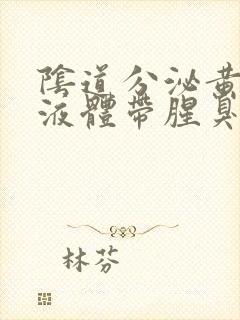 陰道分泌黃
液體帶腥臭
林芬